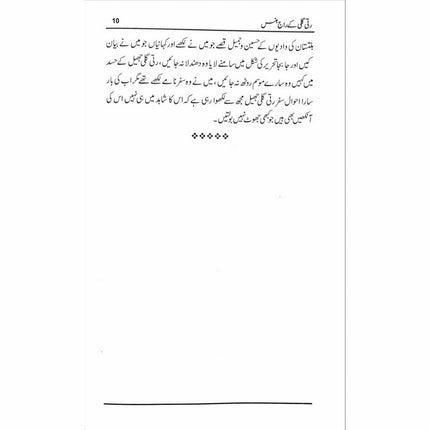 رتی گلی کے راج ہنس
10
بلتستان کی وادیوں کے حسین و جمیل قصے جو میں نے لکھے اور کہانیاں جو میں نے بیان
کیں اور جا بجا تحریر کی شکل میں سامنے لایا وہ دھندلا نہ جائیں، رتی گلی جھیل کے حسد
میں کہیں وہ سارے موسم روٹھ نہ جائیں، میں نے وہ سفرنامے لکھے تھے مگر اب کی بار
سارا احوال سفر رتی گلی جھیل مجھ سے لکھوا رہی ہے کہ اس کا شاہد میں ہی نہیں اس کی
آنکھیں بھی ہیں جو کبھی جھوٹ نہیں بولتیں۔